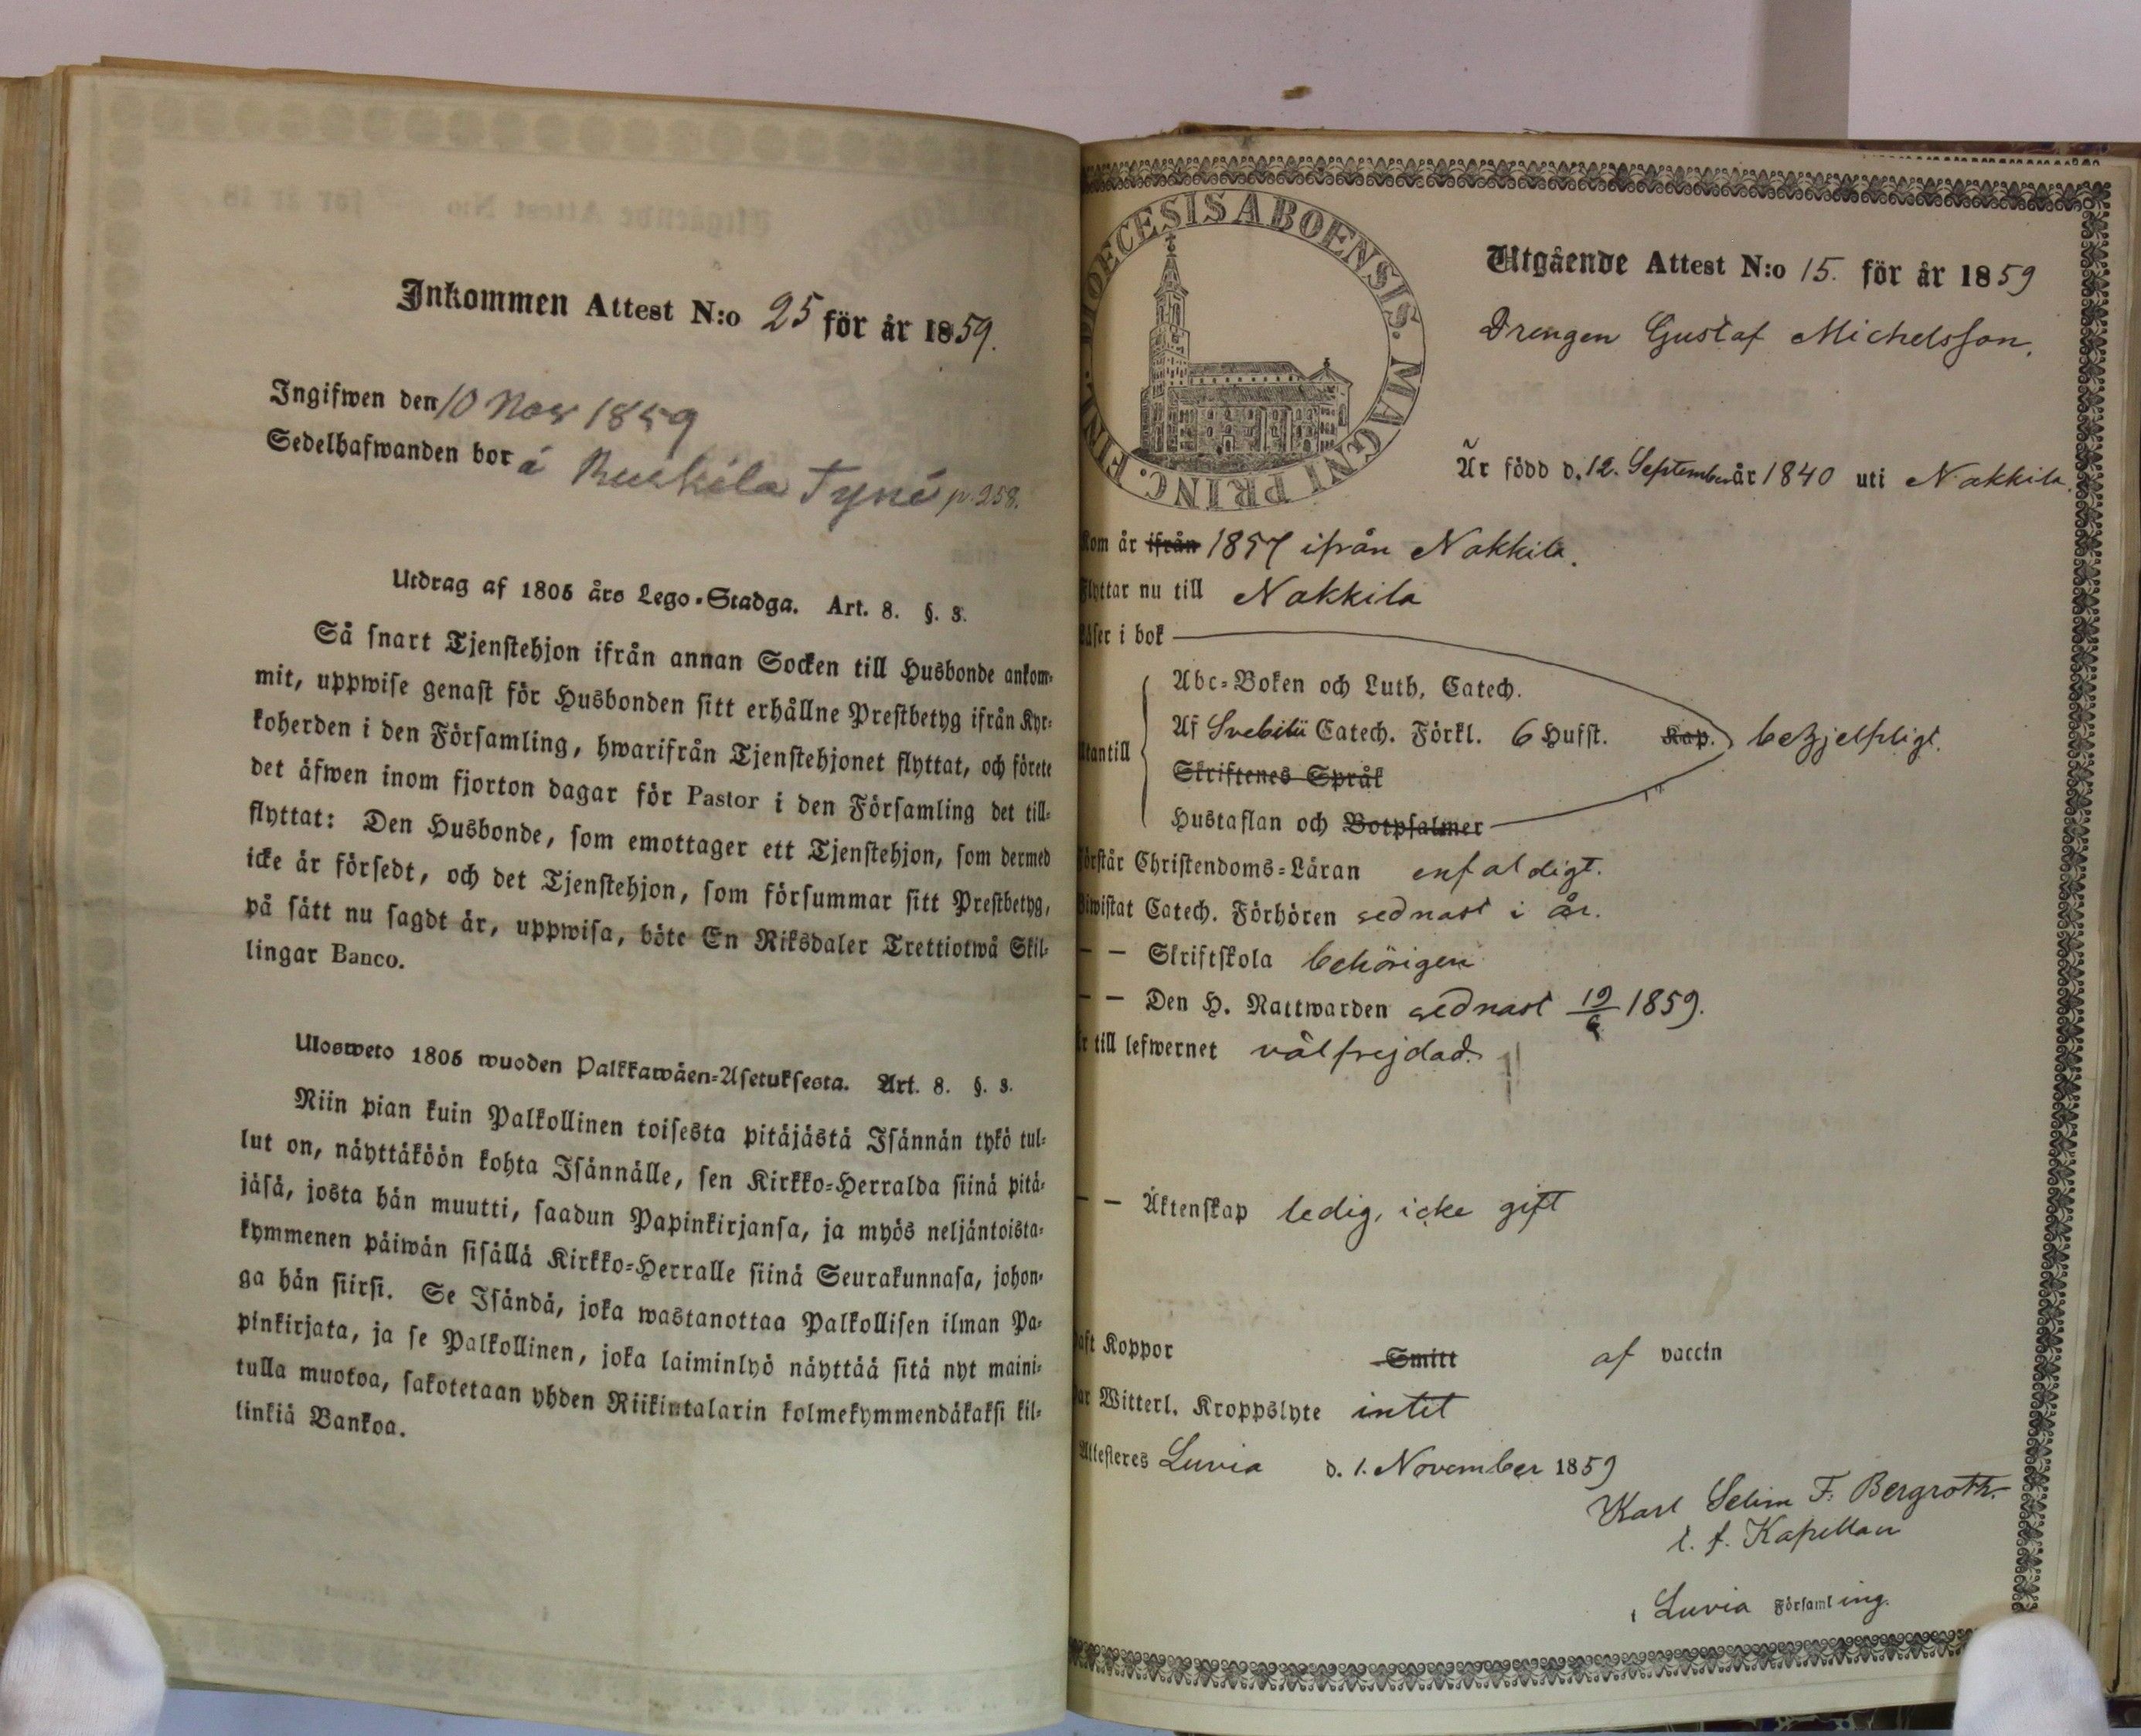 Inkommen Attest N:o 25 för år 1859.
Ingifwen den 10 Nov 1859
Sedelhafwanden bor á Ruskila Tyni p. 258.
Utdrag af 1805 års Lego-Stadga. Art. 8. §. 3.
Så snart Tjenstehjon ifrån annan Socken till Husbonde ankom-
mit, uppwise genast för Husbonden sitt erhållne Prestbetyg ifrån Kyr-
koherden i den Församling, hwarifrån Tjenstehjonet flyttat, och förete
det äfwen inom fjorton dagar för Pastor i den Församling det till-
flyttat: Den Husbonde, som emottager ett Tjenstehjon, som dermed
icke är försedt, och det Tjenstehjon, som försummar sitt Prestbetyg,
på sätt nu sagdt är, uppwisa, böte En Riksdaler Trettiotwå Skil-
lingar Banco.
Ulosweto 1805 wuoden Palkkawäen-Asetuksesta. Art. 8. §. 3.
Niin pian kuin Palkollinen toisesta pitäjästä Isännän tykö tul-
lut on, näyttäköön kohta Isännälle, sen Kirkko-Herralda siinä pitä-
jäsä, josta hän muutti, saadun Papinkirjansa, ja myös neljäntoista-
kymmenen päiwän sisällä Kirkko-Herralle siinä Seurakunnasa, johon-
ga hän siirsi. Se Isändä, joka wastanottaa Palkollisen ilman Pa-
pinkirjata, ja se Palkollinen, joka laiminlyö näyttää sitä nyt maini-
tulla muotoa, sakotetaan yhden Riikintalarin kolmekymmendäkaksi kil-
linkiä Bankoa.
DIOECESIS ABOENSIS. MAGNI PRINC. FINL.
Utgående Attest N:o 15. för år 1859
Drengen Gustaf Michelsson.
Är född d. 12. September år 1840 uti Nakkila.
Kom år ifrån 1857 ifrån Nakkila.
Flyttar nu till Nakkila
Läser i bok
Abc-Boken och Luth, Catech.
Af Svebilii Catech. Förkl. 6 Hufst. Kap. behjelpligt.
Utantill
Skriftenes Språk
Hustaflan och Botpsalmer
Förstår Christendoms-Läran enfaldigt.
Biwistat Catech. Förhören sednast i år.
— — Skriftskola behörigen
— — Den H. Nattwarden sednast 19/6 1859.
Är till lefwernet välfrejdad.
— — Äktenskap ledig, icke gift
Haft Koppor Smitt af vaccin
Har Witterl. Kroppslyte intet
Attesteres Luvia d. 1. November 1859
Karl Selim F. Bergroth.
t. f. Kapellan
i Luvia Församling.